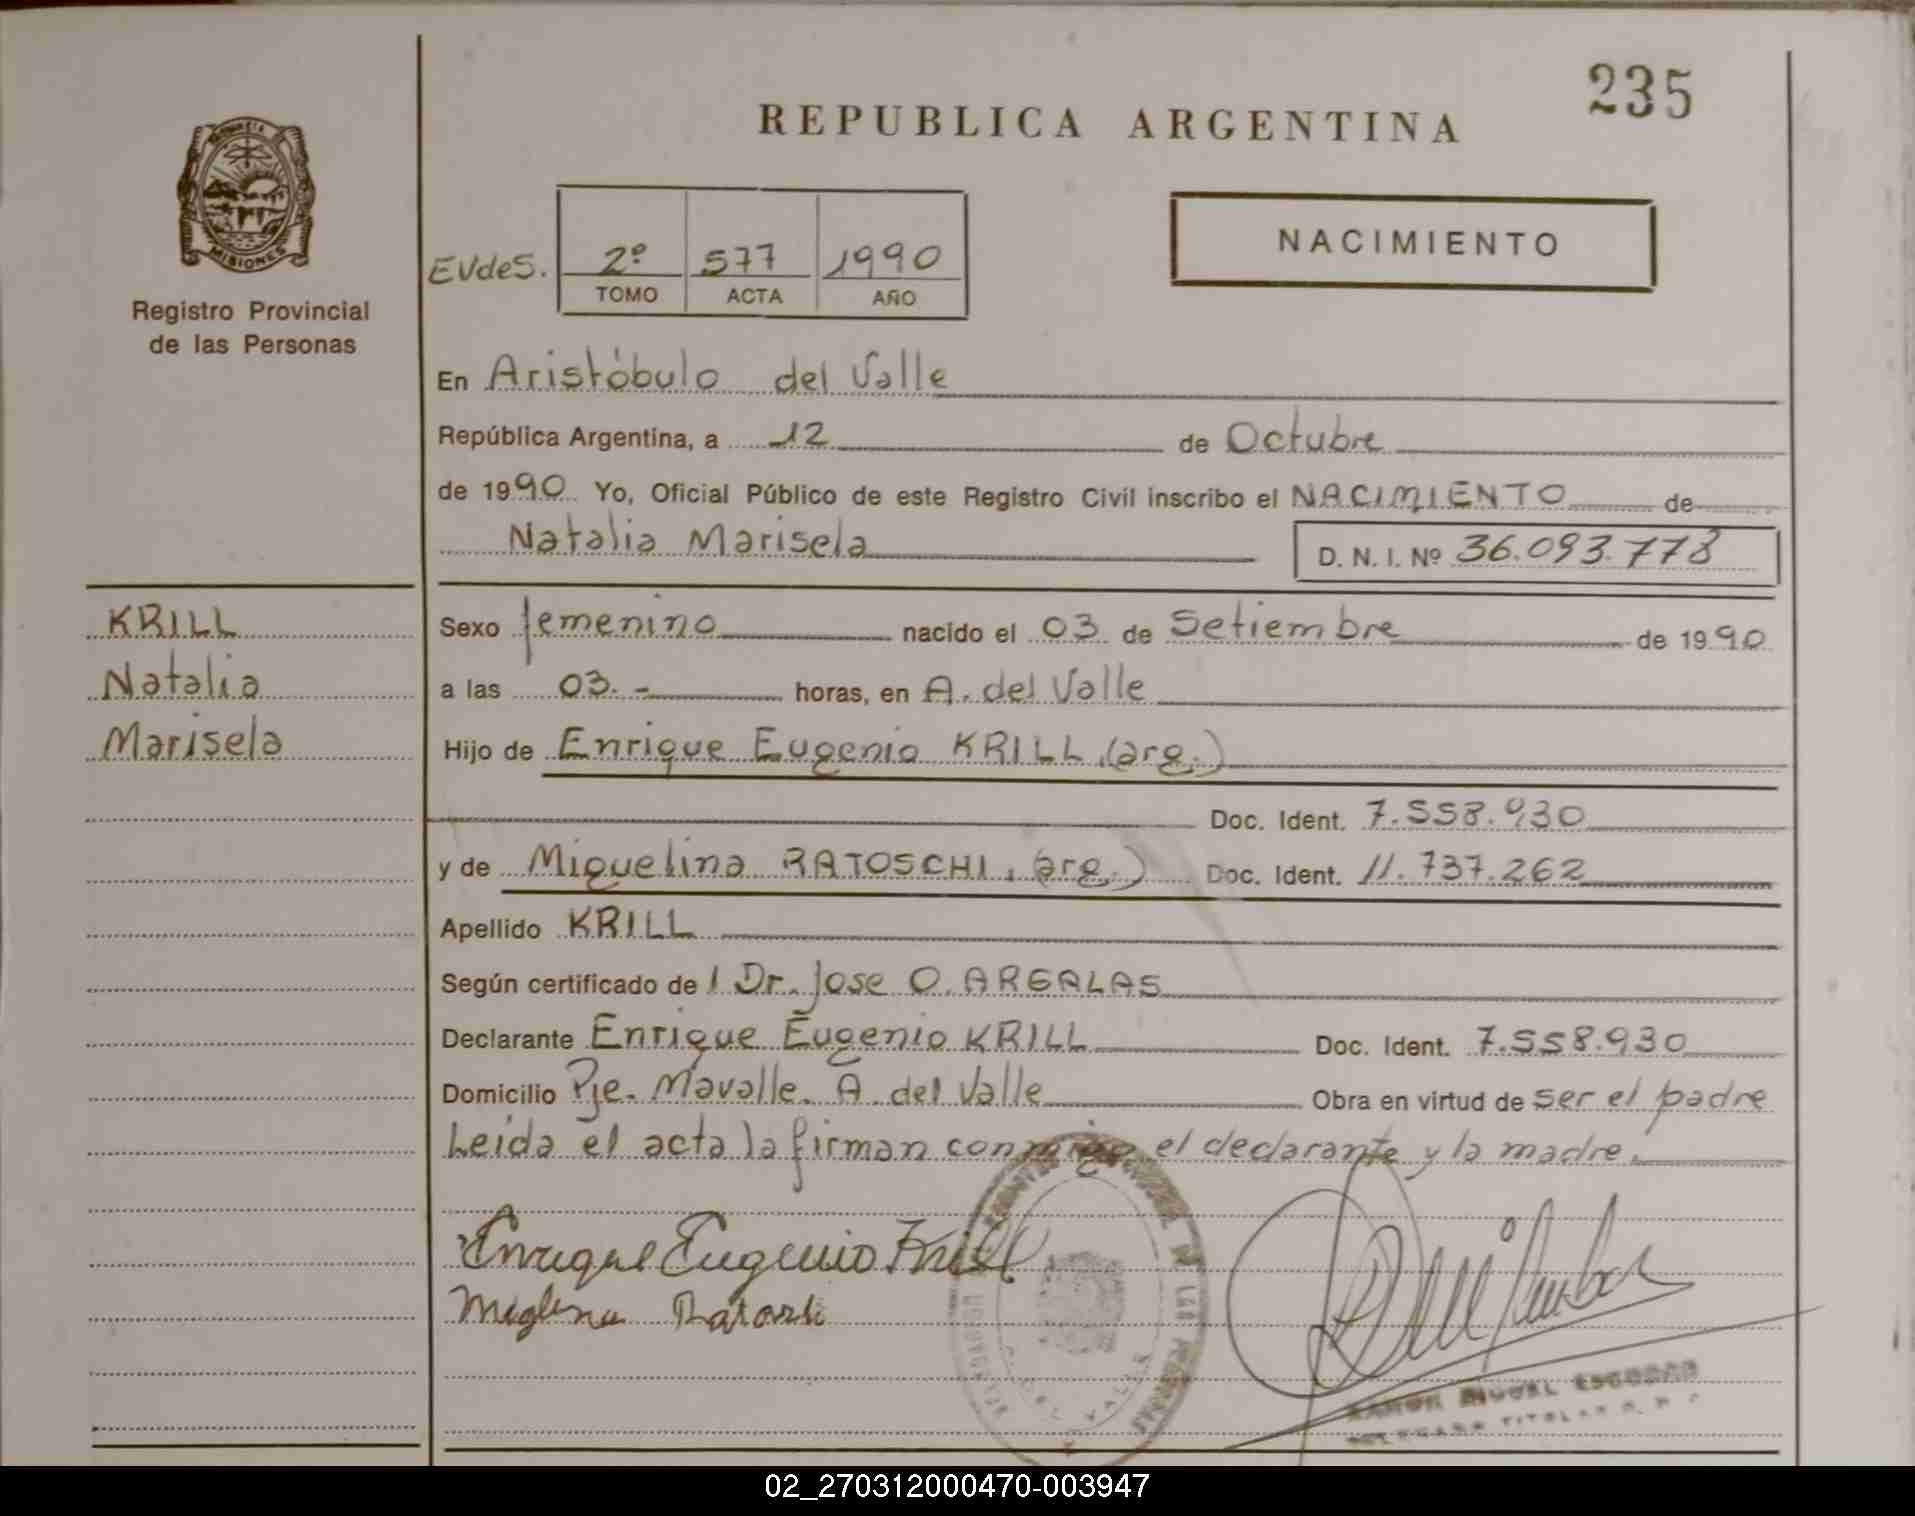 235
REPUBLICA ARGENTINA
PROVINCIA
MISIONES
Registro Provincial
de las Personas
EVdeS. 2º 577 1990
TOMO ACTA AÑO
NACIMIENTO
En Aristóbulo del Valle
República Argentina, a 12 de Octubre
de 1990 Yo, Oficial Público de este Registro Civil inscribo el NACIMIENTO de
Natalia Marisela D. N. I. Nº 36.093.778
KRILL
Natalia
Marisela
Sexo femenino nacido el 03 de Setiembre de 1990
a las 03.- horas, en A. del Valle
Hijo de Enrique Eugenio KRILL (arg.)
Doc. Ident. 7.558.930
y de Miquelina RATOSCHI, (arg.) Doc. Ident. 11.737.262
Apellido KRILL
Según certificado de l Dr. Jose O. ARGALAS
Declarante Enrique Eugenio KRILL Doc. Ident. 7.558.930
Domicilio Pje. Mavalle. A. del Valle Obra en virtud de ser el padre
Leida el acta la firman conmigo el declarante y la madre.
Enrique Eugenio Krill
Ratoschi
DE LAS PERSONAS
DEL VALLE
RAMON MIGUEL ESCOBAR
TITULAR
02_270312000470-003947